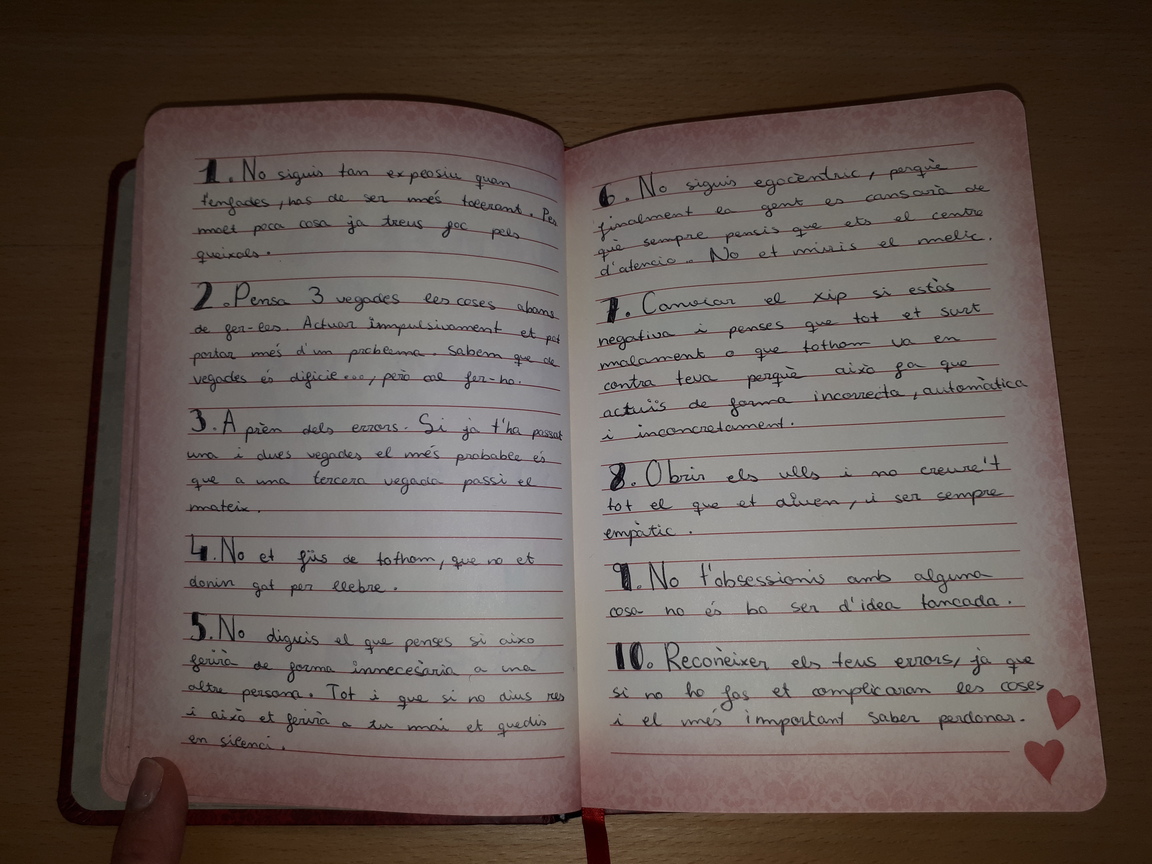 1. No siguis tan expeosiu quan
t'enfades, has de ser més tolerant. Per
molt poca cosa ja treus foc pels
queixals.
2. Pensa 3 vegades les coses abans
de fer-les. Actuar impulsivament et pot
portar més d'un problema. Sabem que de
vegades és difícil..., però cal fer-ho.
3. Aprèn dels errors. Si ja t'ha passat
una i dues vegades el més probable és
que a una tercera vegada passi el
mateix.
4. No et fiïs de tothom, que no et
donin gat per llebre.
5. No diguis el que penses si això
ferirà de forma innecesària a una
altre persona. Tot i que si no dius res
i això et ferirà a tu mai et quedis
en silenci.
6. No siguis egocèntric, perquè
finalment la gent es cansarà de
què sempre pensis que ets el centre
d'atenció.. No et miris el melic.
7. Canviar el xip si estàs
negativa i penses que tot et surt
malament o que tothom va en
contra teva perquè això fa que
actuïs de forma incorrecta, automàtica
i inconcretament.
8. Obrir els ulls i no creure't
tot el que et diuen, i ser sempre
empàtic.
9. No t'obsessionis amb alguna
cosa no és bo ser d'idea tancada.
10. Reconèixer els teus errors, ja que
si no ho fas et complicaran les coses
i el més important saber perdonar.